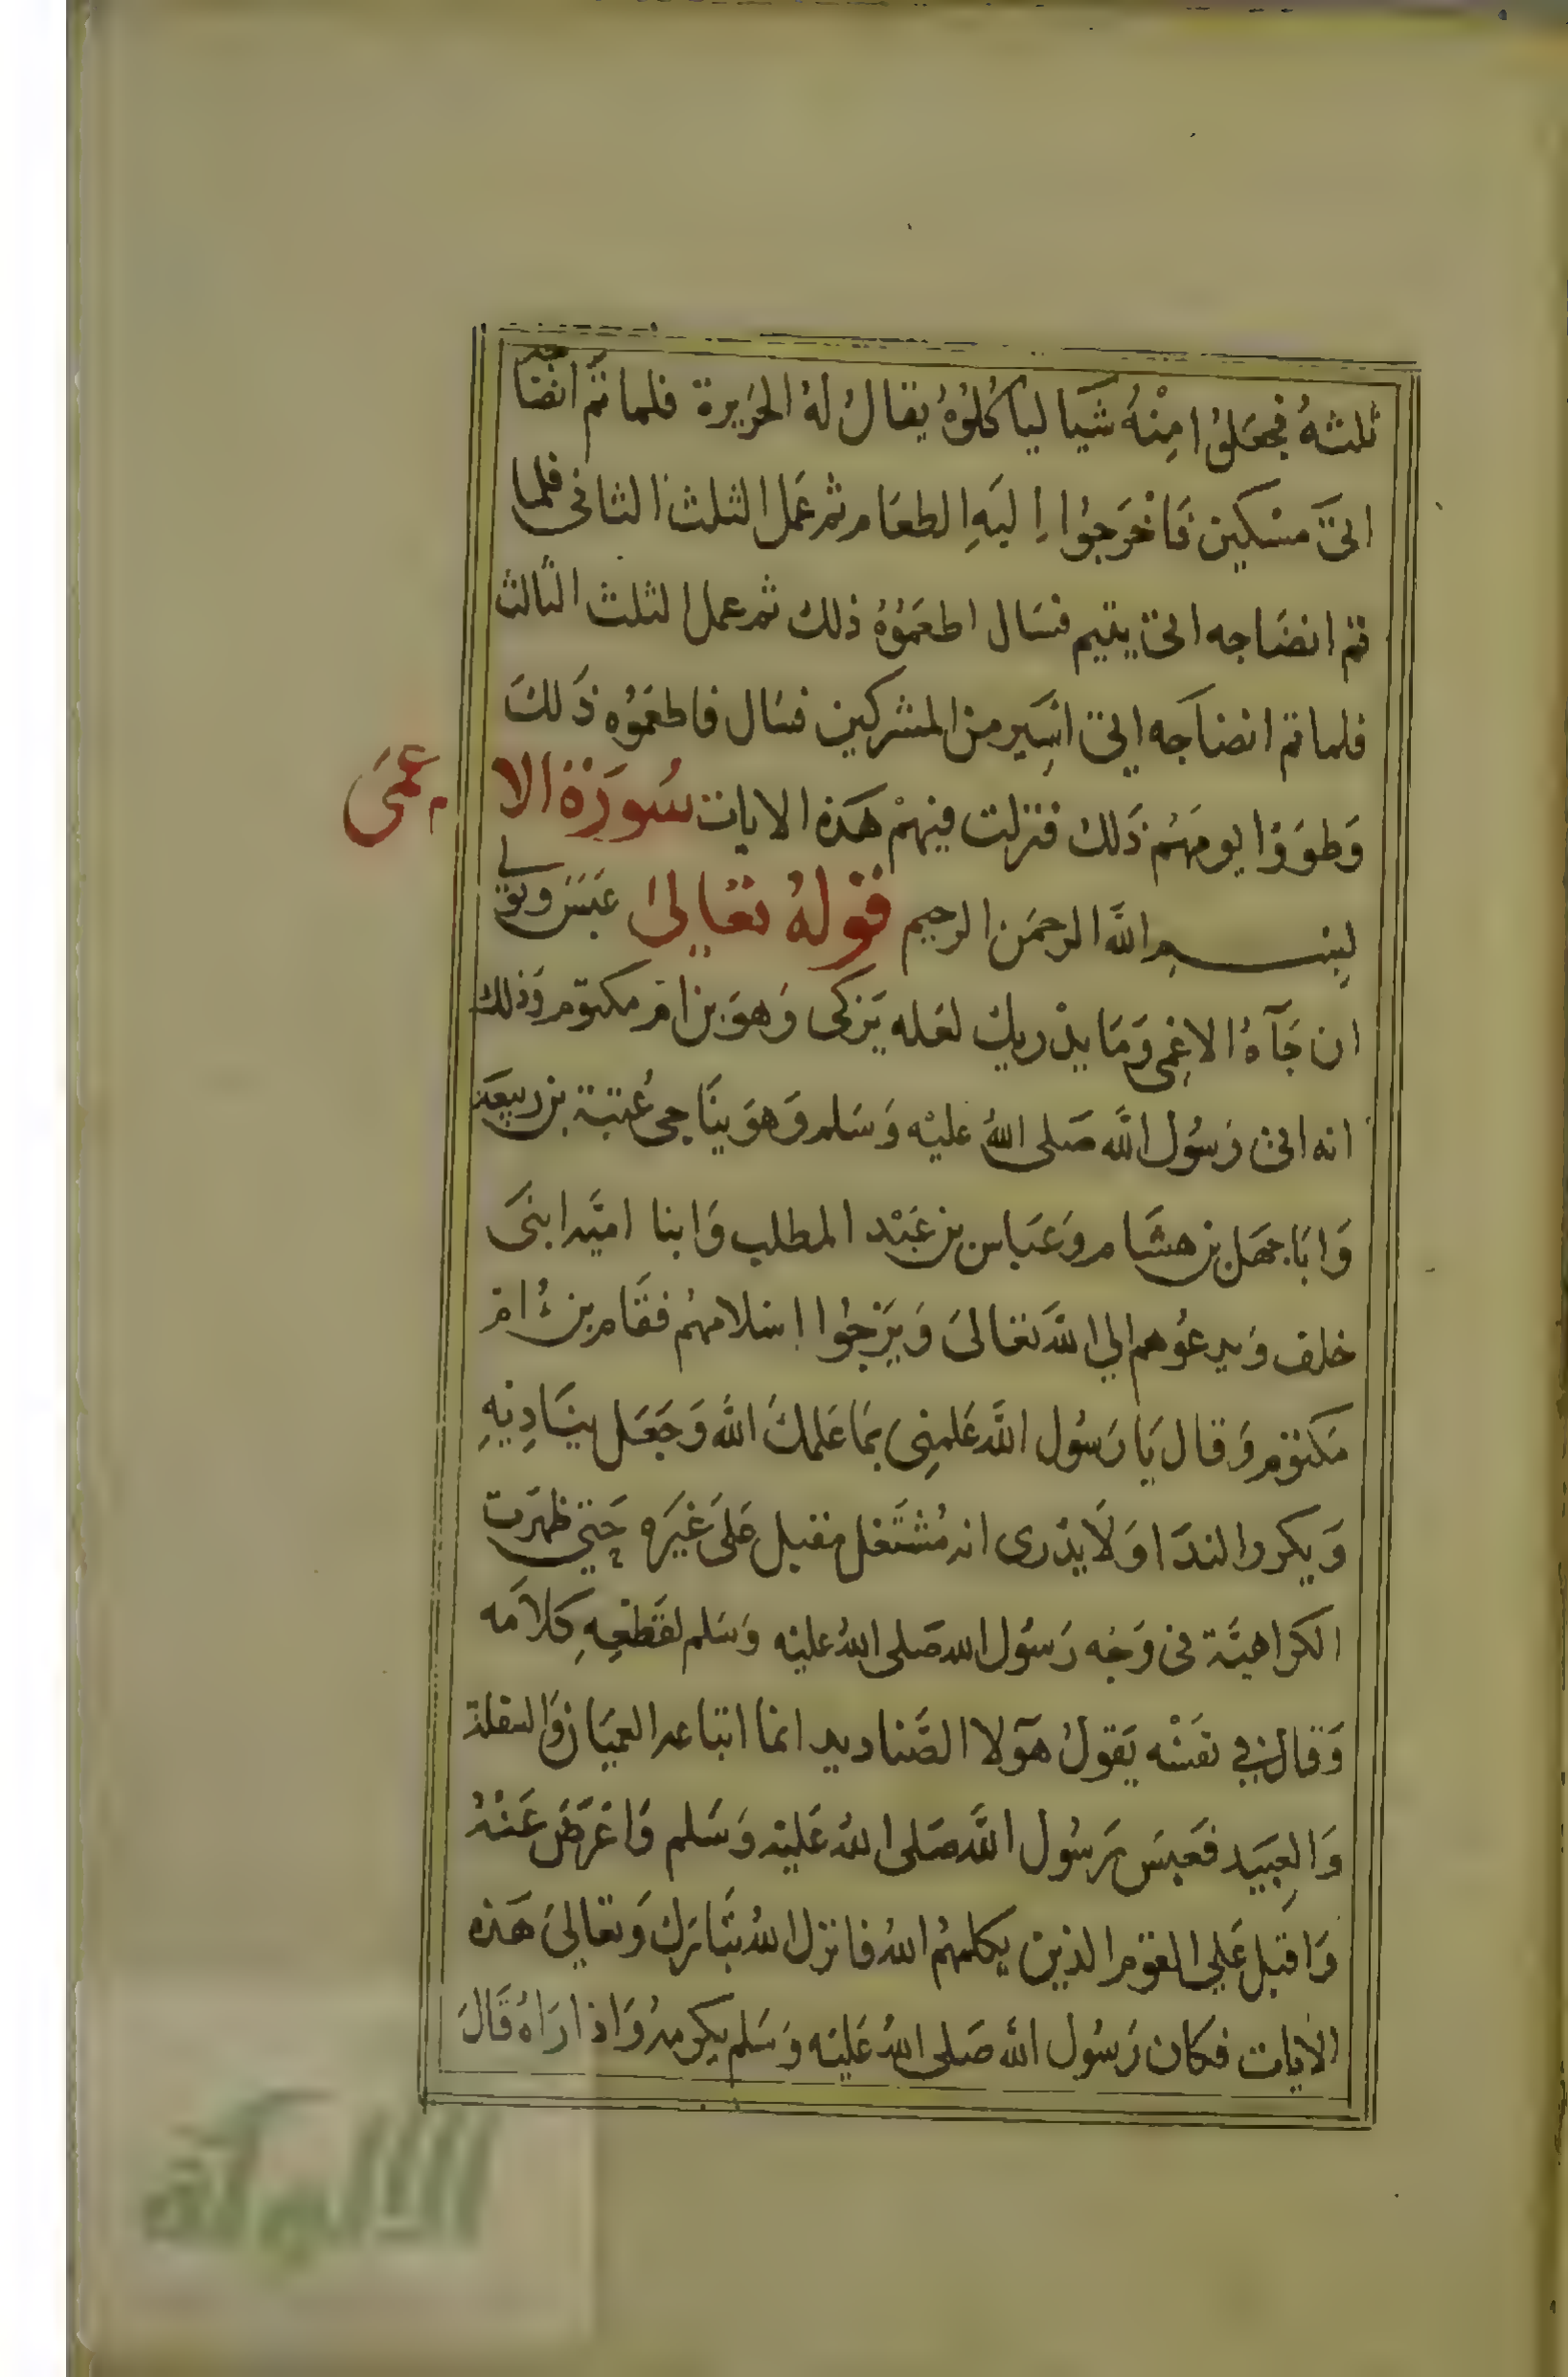 ثلثهُ فجعَلوُا مِنْهُ شَيا لياكُلوُهُ يقالُ لهُ الحَزيرة فلما تمّ انضاجه
اتىَ مسْكين فَاخْرَجوُا اِليَهِ الطعَام ثم عَمل الثلث الثانى فلما
تم انضَاجه اتى يتيم فسَال اطعَمُوُهُ ذلك ثم عمل الثلث الثالث
فلما تم انضاجَه اتى اسَير من المشركين فسَال فاطعَمُوُه ذَلكَ
وَطوَوْا يومَهُم ذَلك فنزلت فيهمْ هَذه الايات سُورَة الاعمَى
بسم اللَّه الرحمَن الرحيم قولهُ تعَالىَ عَبَسَ وَتولى
ان جَآهُ الاعْمى وَمَا يدْريك لعَله يَزكى وَهوَ بن ام مكتوم وَذلك
انه اتى رَسُول اللَّه صَلى اللهُ عليْه وَسَلم وَهوَ ينَاجى عُتبة بن ربيعَة
وَابَا جهَل بن هشَام وَعَباس بن عَبْد المطلب وَابنا اميَّه ابنىَ
خلف وَيدعُوهم الي اللَّه تعَالىَ وَيَرْجُوا اسْلامهُم فقَام بنُ ام
مَكتوم وَقال يَا رَسُول اللَّه عَلمِنِى بمَا عَلمكَ اللَّه وَجَعَل ينَادِيْهِ
وَيكرر الندَا وَلَا يدْرى انه مُشْتَغل مقبل عَلىَ غيَره حَتى ظهَرت
الكراهيَة فى وَجْه رَسوُل الله صَلى اللهُ عليْه وَسَلم لقَطْعِهِ كلامَه
وَقال في نفسْه يَقولُ هَؤلا الصَّناديد انما اتباعه العميَان وَالسفلة
وَالعِبيَد فعَبسَ رَسُول اللَّه صَلى اللهُ عَليْه وَسَلم وَاعْرَضَ عَنْهُ
وَاقبل عَلي القوم الذين يكلمهُم اللهُ فانزل اللهُ تبَارَك وَتعَالىَ هَذه
الايات فكان رَسُول اللَّه صَلى اللهُ عَليْه وَسَلم يكرمهُ وَاذا رَاهُ قَالَ
الألوكة